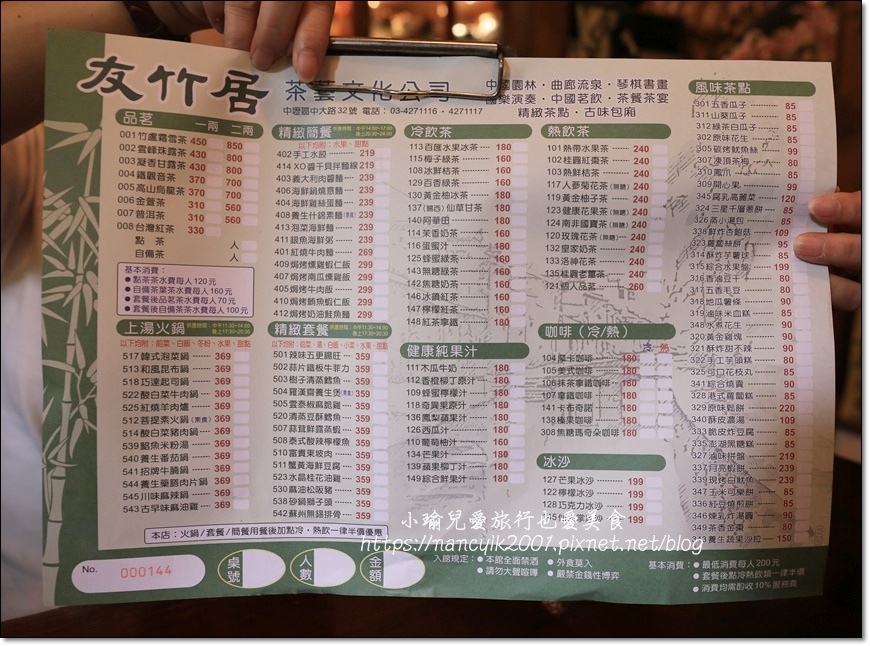 友竹居
茶藝文化公司
中壢區中大路32號 電話：03-4271116・4271117
中國園林・曲廊流泉・琴棋書畫
國樂演奏・中國茗飲・茶餐茶宴
精緻茶點・古味包廂
品茗 一兩 二兩
001竹盧霜雪茶 450 850
002雲峰珠露茶 430 800
003凝香甘露茶 430 800
004鐵觀音茶 370 700
005高山烏龍茶 370 700
006金萱茶 310 560
007普洱茶 310 560
008台灣紅茶 330
點茶 人
自備茶 人
基本消費：
●點茶茶水費每人120元
●自備茶葉茶水費每人160元
●套餐後品茗茶水費每人70元
●套餐後自備茶茶水費每人100元
上湯火鍋
以下均附：前菜、白飯、冬粉、水果、甜點
517 韓式泡菜鍋 369
513 和風昆布鍋 369
518 巧達起司鍋 369
522 酸白菜牛肉鍋 369
525 紅燒羊肉爐 369
512 菩提素火鍋(素食) 369
514 酸白菜豬肉鍋 369
539 鯛魚米粉湯 369
540 養生番茄鍋 369
541 招牌牛腩鍋 369
544 養生藥膳肉片鍋 369
545 川味麻辣鍋 369
543 古早味麻油鍋 369
精緻簡餐
以下均附：水果、甜點
402 手工水餃 219
414 XO醬干貝拌麵線 219
403 義大利肉醬麵 239
406 海鮮鍋燒意麵 239
404 海鮮雞絲蛋麵 239
408 養生什錦素麵(素食) 239
413 泡菜海鮮麵 239
411 銀魚海鮮粥 239
401 紅燒牛肉麵 269
409 焗烤燻雞蝦仁飯 299
407 焗烤南瓜燻雞飯 299
405 焗烤海鮮蝦仁飯 299
410 焗烤鯛魚蝦仁飯 299
412 焗烤奶油鮭魚麵 299
精緻套餐
以下均附：前菜、湯、白飯、小菜、水果、甜點
501 辣味五更腸旺 359
502 蒜片鐵板牛菲力 359
503 樹子清蒸鱈魚 359
504 羅漢齋養生煲(素食) 359
505 雲泰椒麻脆雞 359
520 清蒸豆酥鱈魚 359
507 蒜茸鮮露蒸蝦 359
508 泰式酸辣檸檬魚 359
510 富貴東坡肉 359
511 蟹黃海鮮豆腐 359
523 水晶桂花油雞 359
530 麻油松阪豬 359
538 砂鍋獅子頭 359
542 蘇州無錫排骨 359
本店：火鍋/套餐/簡餐用餐後加點冷・熱飲一律半價優惠
冷飲茶
113 百匯水果冰茶 180
115 梅子綠茶 160
108 冰鮮桔茶 160
129 百香綠茶 160
130 黃金柚冰茶 160
137(關西)仙草甘茶 160
140 阿華田 160
114 茉香奶茶 160
116 蛋蜜汁 160
125 蜂蜜綠茶 160
143 無糖綠茶 160
142 焦糖奶茶 160
146 冰鎮紅茶 160
147 檸檬紅茶 160
148 紅茶拿鐵 160
健康純果汁
111 木瓜牛奶 180
112 香橙柳丁原汁 180
109 蜂蜜檸檬汁 180
118 奇異果原汁 180
136 鳳梨蘋果汁 180
126 西瓜汁 180
110 葡萄柚汁 180
134 芒果汁 180
139 蘋果柳丁汁 180
149 綜合鮮果汁 180
熱飲茶
101 熱帶水果茶 240
102 桂圓紅棗茶 240
103 熱鮮桔茶 240
117 人蔘菊花茶(無糖) 240
119 黃金柚子茶 240
123 健康花果茶(無糖) 240
124 南非國寶茶(無糖) 240
120 玫瑰花茶(無糖) 240
132 皇家奶茶 240
133 洛神花茶 240
135 桂圓老薑茶 240
121 個人品茗 260
咖啡（冷/熱）
冷 熱
104 摩卡咖啡 180
105 美式咖啡 180
106 抹茶拿鐵咖啡 180
107 拿鐵咖啡 180
141 卡布奇諾 180
138 榛果咖啡 180
308 焦糖瑪奇朵咖啡 180
冰沙
127 芒果冰沙 199
122 檸檬冰沙 199
128 巧克力冰沙 199
風味茶點
301 五香瓜子 85
311 山葵瓜子 85
312 綠茶白瓜子 85
302 原味花生 85
305 碳烤魷魚絲 99
307 凍頂茶梅 80
310 鳳爪 85
309 開心果 99
345 腐乳高麗菜 120
324 三星千層蔥餅 85
326 蒸小湯包 85
323 蘿蔔絲餅 95
314 酥炸芋薯球 85
315 綜合水果盤 199
336 香滷豆干 80
317 五香毛豆 80
318 地瓜薯條 90
319 滷味米血糕 85
348 水煮花生 90
320 黃金雞塊 90
321 酥炸甜不辣 90
322 手工芋頭糕 90
325 可口花枝丸 85
341 綜合燒賣 90
328 港式蘿蔔糕 85
329 原味蚵餅 220
340 酥皮濃湯 109
333 脆皮炸豆腐 85
335 澎湖黑糖糕 85
334 滷味拼盤 219
337 月亮蝦餅 219
347 玉米可樂餅 85
336 紅豆煎餅 80
346 煉乳炸湯圓 90
349 茶香金棗 80
313 養生蔬果沙拉 150
小瑜兒愛旅行也愛美食
https://nancylk2001.pixnet.net/blog
No. 000144
桌號
人數
金額
入館規定：●本館全面禁酒 ●外食莫入
●請勿大聲喧嘩 ●嚴禁金錢性博弈
基本消費：●最低消費每人200元
●套餐後點冷熱飲類一律半價
●消費均需酌收10%服務費